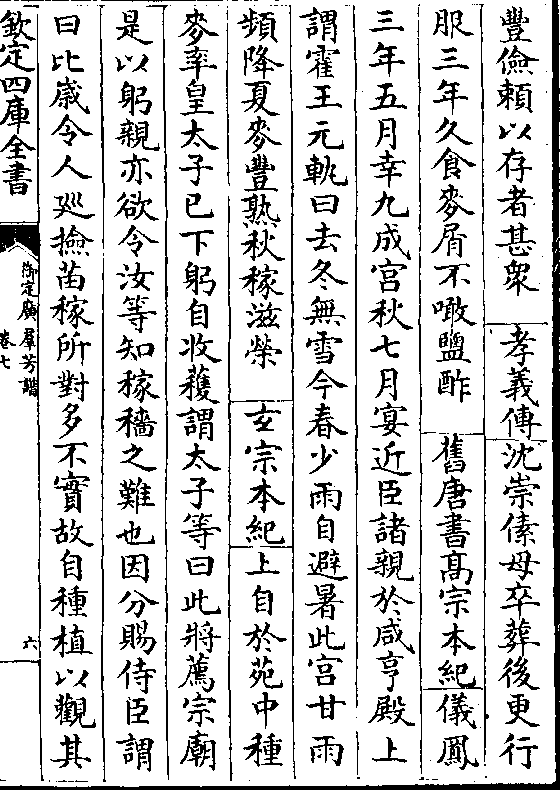 豐儉頼以存者甚衆　孝義傳沈崇傃母卒葬後更行
服三年久食麥屑不噉鹽酢　舊唐書髙宗本紀儀鳳
三年五月幸九成宫秋七月宴近臣諸親於咸亨殿上
謂霍王元軌曰去冬無雪今春少雨自避暑此宫甘雨
頻降夏麥豐熟秋稼滋榮　𤣥宗本紀上自於苑中種
麥率皇太子已下躬自收穫謂太子等曰此將薦宗廟
是以躬親亦欲令汝等知稼穡之難也因分賜侍臣謂
曰比嵗令人廵撿苗稼所對多不實故自種植以觀其
欽定四庫全書
御定廣羣芳譜
卷七
六